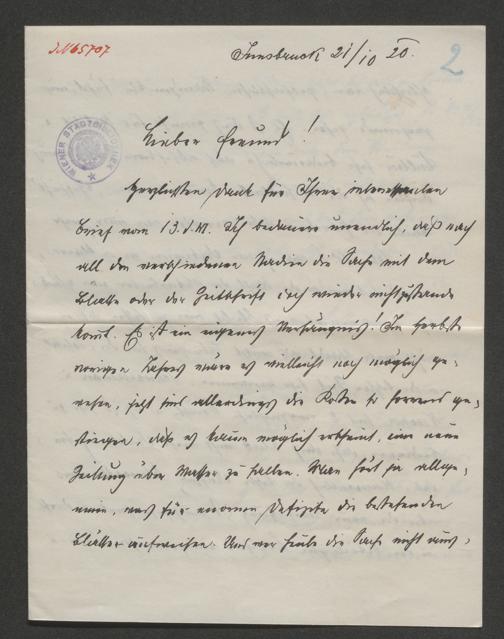 J.N 65707
Innsbruck 21/10 20.
2
WIENER STADTBIBLIOTHEK
Lieber Freund!
Herzlichsten Dank für Ihren interessanten
Brief vom 13. d. M. Ich bedaure unendlich, daß nach
all den verschiedenen Stadien die Sache mit dem
Blatte oder der Zeitschrift doch wieder nicht zustande
kommt. Es ist ein eigenes Verhängnis! Im Herbst
vorigen Jahres wäre es vielleicht noch möglich ge-
wesen, jetzt sind allerdings die Kosten so horrend ge-
stiegen, daß es kaum möglich erscheint, eine neue
Zeitung über Wasser zu halten. Man hört ja allge-
mein, was für enormen Defizite die bestehenden
Blätter aufweisen. Und wer heute die Sache nicht aus-